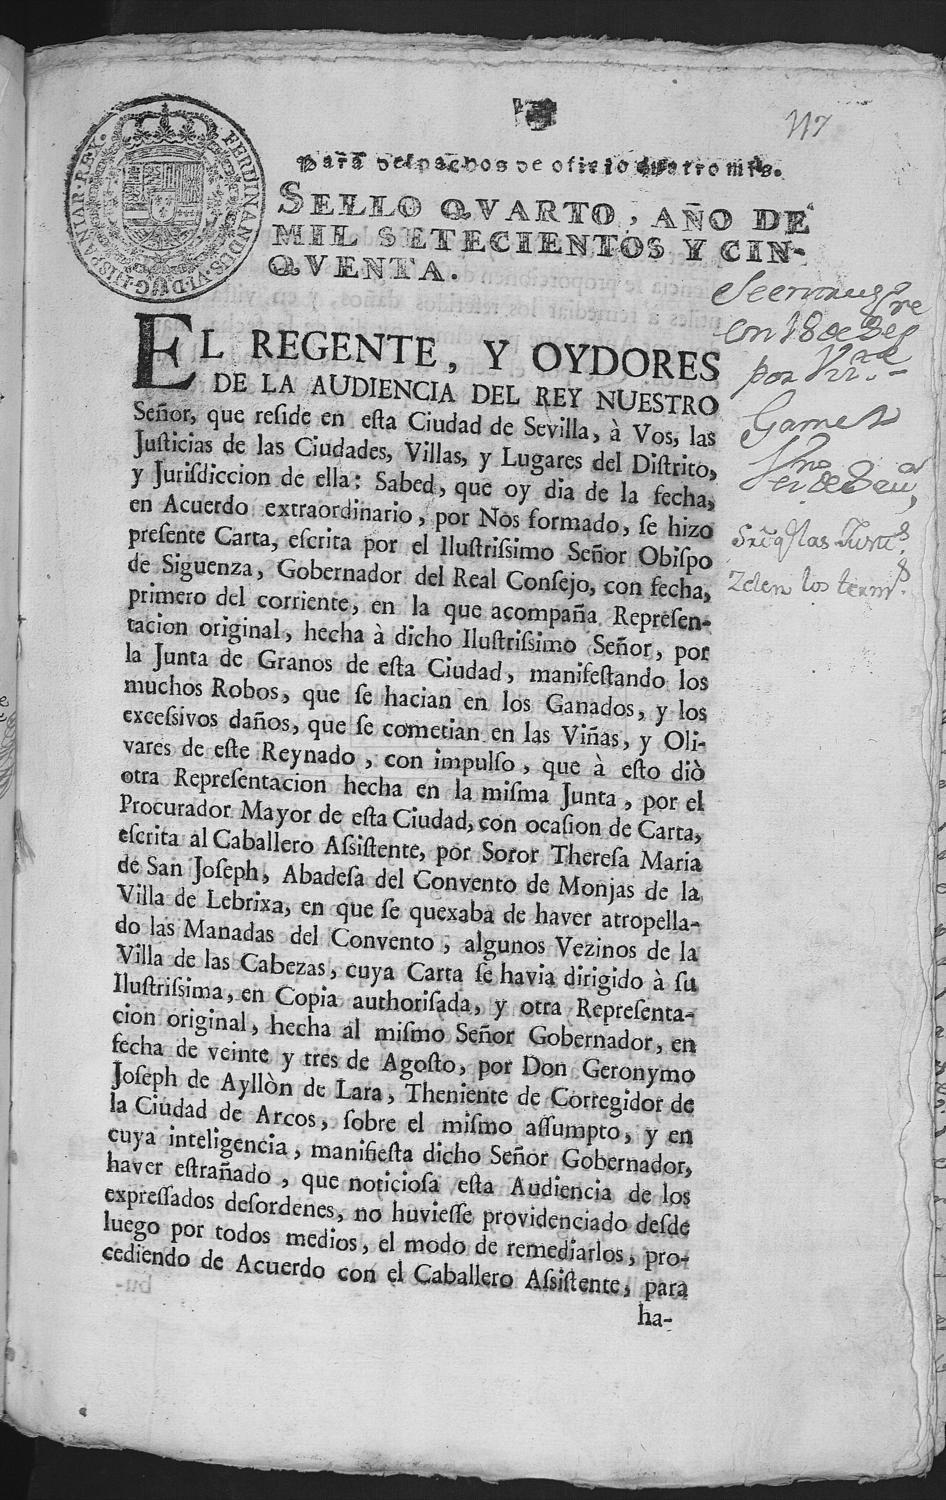 117
FERDINANDUS·VI·D·G·HISPANIAR·REX·
Para despachos de oficio quatro mrs.
SELLO QVARTO, AÑO DE
MIL SETECIENTOS Y CIN-
QVENTA.
EL REGENTE, Y OYDORES
DE LA AUDIENCIA DEL REY NUESTRO
Señor, que reside en esta Ciudad de Sevilla, à Vos, las
Justicias de las Ciudades, Villas, y Lugares del Distrito,
y Jurisdiccion de ella: Sabed, que oy dia de la fecha,
en Acuerdo extraordinario, por Nos formado, se hizo
presente Carta, escrita por el Ilustrissimo Señor Obispo
de Siguenza, Gobernador del Real Consejo, con fecha,
primero del corriente, en la que acompaña Represen-
tacion original, hecha à dicho Ilustrissimo Señor, por
la Junta de Granos de esta Ciudad, manifestando los
muchos Robos, que se hacian en los Ganados, y los
excessivos daños, que se cometian en las Viñas, y Oli-
vares de este Reynado, con impulso, que à esto diò
otra Representacion hecha en la misma Junta, por el
Procurador Mayor de esta Ciudad, con ocasion de Carta,
escrita al Caballero Assistente, por Soror Theresa Maria
de San Joseph, Abadesa del Convento de Monjas de la
Villa de Lebrixa, en que se quexaba de haver atropella-
do las Manadas del Convento, algunos Vezinos de la
Villa de las Cabezas, cuya Carta se havia dirigido à su
Ilustrissima, en Copia authorisada, y otra Representa-
cion original, hecha al mismo Señor Gobernador, en
fecha de veinte y tres de Agosto, por Don Geronymo
Joseph de Ayllòn de Lara, Theniente de Corregidor de
la Ciudad de Arcos, sobre el mismo assumpto, y en
cuya inteligencia, manifiesta dicho Señor Gobernador,
haver estrañado, que noticiosa esta Audiencia de los
expressados desordenes, no huviesse providenciado desde
luego por todos medios, el modo de remediarlos, pro-
cediendo de Acuerdo con el Caballero Assistente, para
ha-
en 18 de
por
las
los term.s